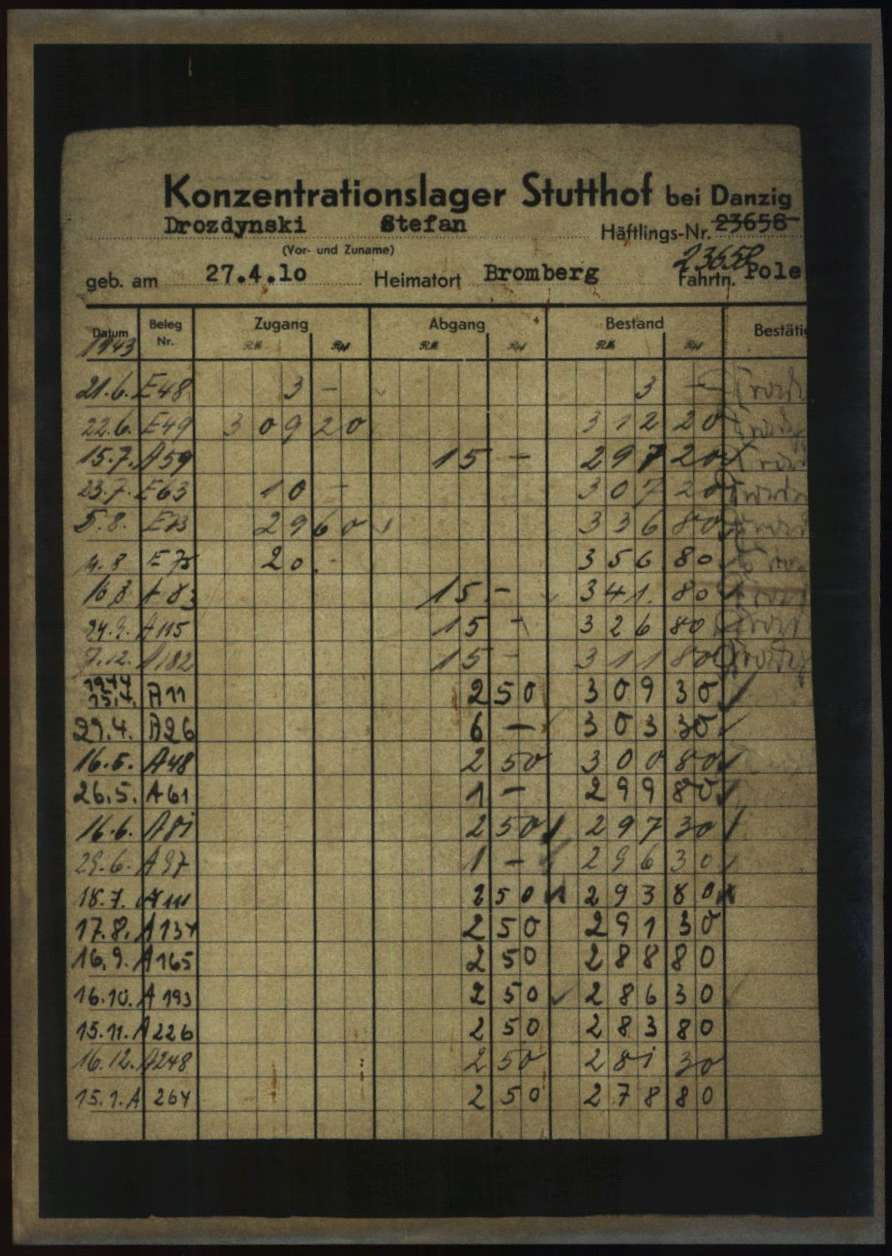 Konzentrationslager Stutthof bei Danzig
Drozdynski Stefan
Häftlings-Nr. 23658
(Vor- und Zuname)
23658
geb. am 27.4.10 Heimatort Bromberg Fahrtn. Pole
Datum Beleg Nr. Zugang Abgang Bestand Bestätig
1943 RM Rpf RM Rpf RM Rpf
21.6. E48 3 – 3 –
22.6. E49 309 20 312 20
15.7. A59 15 – 297 20
23.7. E63 10 – 307 20
5.8. E73 29 60 336 80
E75 20 – 356 80
16.8 A83 15 – 341. 80
24.9. A115 15 – 326 80
7.12. A182 15 – 311 80
1944
15.4. A11 2 50 309 30
29.4. A26 6 – 303 30
16.5. A48 2 50 300 80
26.5. A61 1 – 299 80
16.6. A81 2 50 297 30
29.6. A97 1 – 296 30
18.7. A111 2 50 293 80
17.8. A134 2 50 291 30
16.9. A165 2 50 288 80
16.10. A193 2 50 286 30
15.11. A226 2 50 283 80
16.12. A248 2 50 281 30
15.1. A264 2 50 278 80